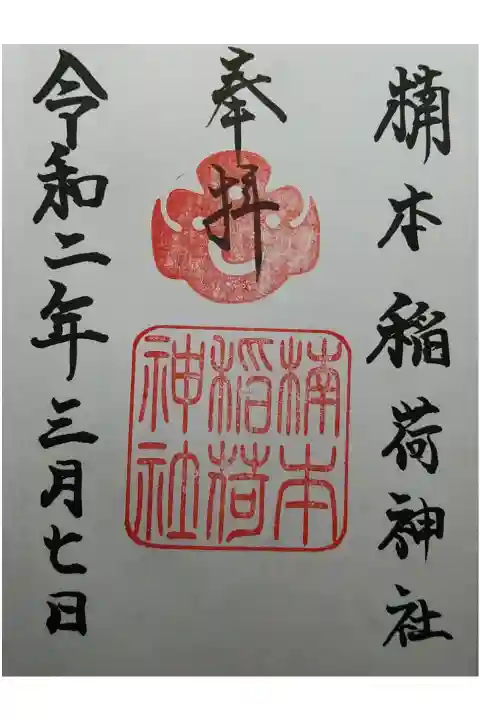 楠本稲荷神社
奉拝
楠本
稲荷
神社
令和二年三月七日